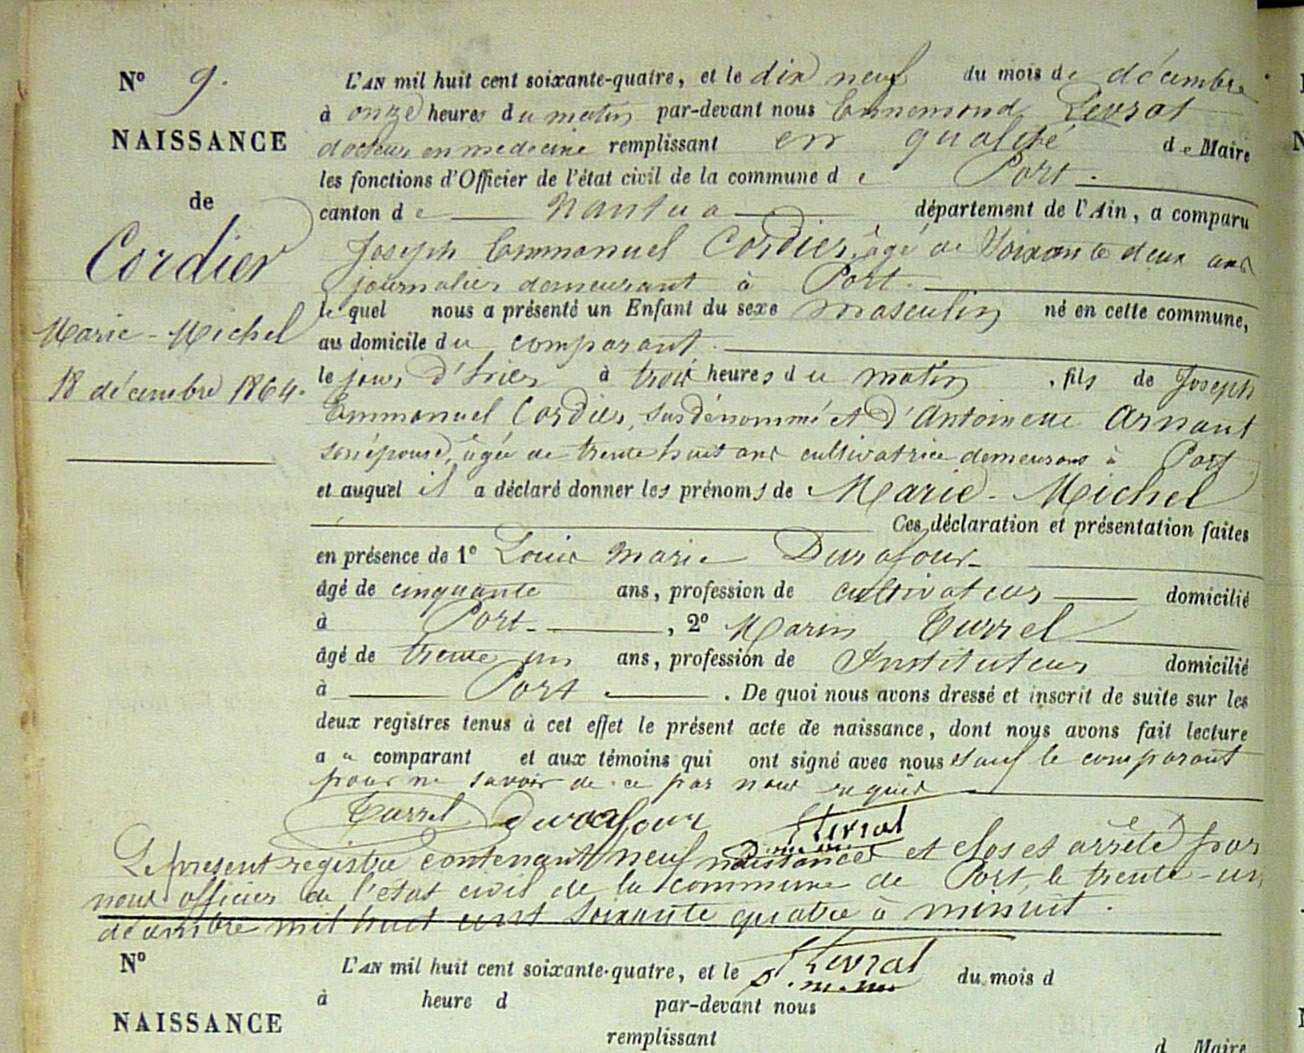 N° 9.
NAISSANCE
de
Cordier
Marie-Michel
18 décembre 1864.
L'AN mil huit cent soixante-quatre, et le dix neuf du mois de décembre
à onze heures du matin par-devant nous Ennemond Levrat
docteur en médecine remplissant en qualité de Maire
les fonctions d'Officier de l'état civil de la commune de Port.
canton de Nantua département de l'Ain, a comparu
Joseph Emmanuel Cordier, âgé de Soixante deux ans
journalier demeurant à Port.
lequel nous a présenté un Enfant du sexe masculin né en cette commune,
au domicile du comparant.
le jour d'hier à trois heures du matin, fils de Joseph
Emmanuel Cordier, susdénommé et d'Antoinette Arnant
son épouse, âgée de trente huit ans cultivatrice demeurant à Port
et auquel il a déclaré donner les prénoms de Marie-Michel
Ces déclaration et présentation faites
en présence de 1° Louis Marie Durafour
âgé de cinquante ans, profession de cultivateur domicilié
à Port, 2° Marin Turrel
âgé de trente un ans, profession de Instituteur domicilié
à Port. De quoi nous avons dressé et inscrit de suite sur les
deux registres tenus à cet effet le présent acte de naissance, dont nous avons fait lecture
au comparant et aux témoins qui ont signé avec nous sauf le comparant
pour ne savoir de ce par nous requis
Turrel Durafour Levrat
Le présent registre contenant neuf naissances et clos et arrêté par
nous officier de l'état civil de la commune de Port, le trente-un
décembre mil huit cent soixante quatre à minuit.
Levrat
N°
NAISSANCE
L'AN mil huit cent soixante-quatre, et le du mois d
à heure d par-devant nous
remplissant d Maire